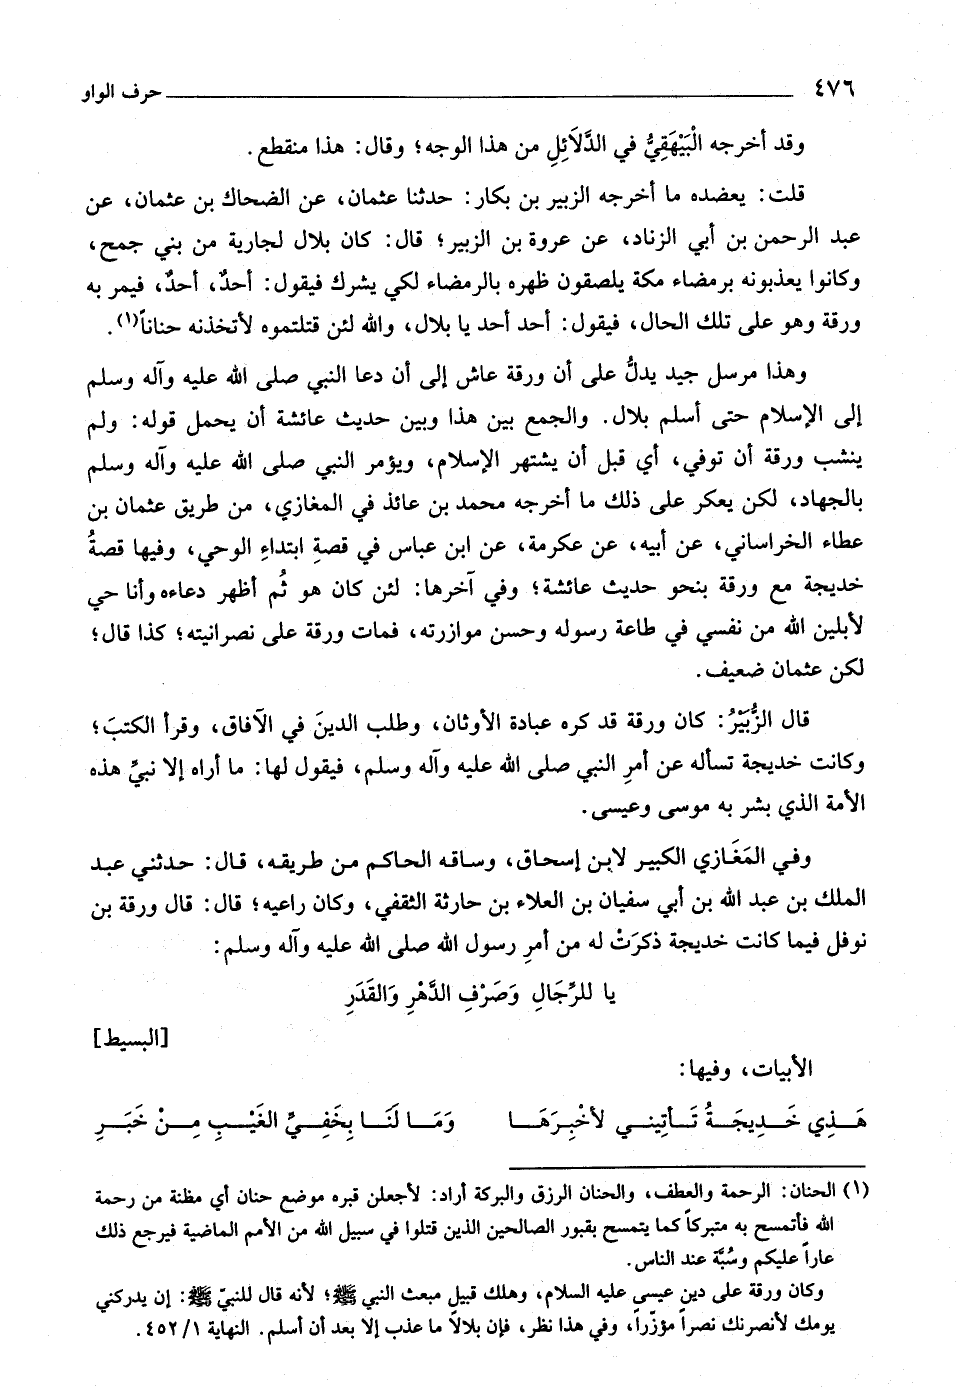 ٤٧٦ حرف الواو
وقد أخرجه الْبَيْهَقِيُّ في الدَّلَائِلِ من هذا الوجه؛ وقال: هذا منقطع.
قلت: يعضده ما أخرجه الزبير بن بكار: حدثنا عثمان، عن الضحاك بن عثمان، عن
عبد الرحمن بن أبي الزناد، عن عروة بن الزبير؛ قال: كان بلال لجارية من بني جمح،
وكانوا يعذبونه برمضاء مكة يلصقون ظهره بالرمضاء لكي يشرك فيقول: أحدٌ، أحدٌ، فيمر به
ورقة وهو على تلك الحال، فيقول: أحد أحد يا بلال، والله لئن قتلتموه لأتخذنه حناناً(١).
وهذا مرسل جيد يدلُّ على أن ورقة عاش إلى أن دعا النبي صلى الله عليه وآله وسلم
إلى الإسلام حتى أسلم بلال. والجمع بين هذا وبين حديث عائشة أن يحمل قوله: ولم
ينشب ورقة أن توفي، أي قبل أن يشتهر الإسلام، ويؤمر النبي صلى الله عليه وآله وسلم
بالجهاد، لكن يعكر على ذلك ما أخرجه محمد بن عائذ في المغازي، من طريق عثمان بن
عطاء الخراساني، عن أبيه، عن عكرمة، عن ابن عباس في قصةِ ابتداءِ الوحي، وفيها قصةُ
خديجة مع ورقة بنحو حديث عائشة؛ وفي آخرها: لئن كان هو ثُم أظهر دعاءه وأنا حي
لأبلين الله من نفسي في طاعة رسوله وحسن موازرته، فمات ورقة على نصرانيته؛ كذا قال؛
لكن عثمان ضعيف.
قال الزُّبَيْرُ: كان ورقة قد كره عبادة الأوثان، وطلب الدينَ في الآفاق، وقرأ الكتبَ؛
وكانت خديجة تسأله عن أمرِ النبي صلى الله عليه وآله وسلم، فيقول لها: ما أراه إلا نبيَّ هذه
الأمة الذي بشر به موسى وعيسى.
وفي المَغَازي الكبير لابن إسحاق، وساقه الحاكم من طريقه، قال: حدثني عبد
الملك بن عبد الله بن أبي سفيان بن العلاء بن حارثة الثقفي، وكان راعيه؛ قال: قال ورقة بن
نوفل فيما كانت خديجة ذكرَتْ له من أمرِ رسول الله صلى الله عليه وآله وسلم:
يا للرِّجَالِ وَصَرْفِ الدَّهْرِ وَالقَدَرِ
[البسيط]
الأبيات، وفيها:
هَذِي خَدِيجَةُ تَأتِيني لأُخْبِرَهَا وَمَا لَنَا بِخَفِيِّ الغَيْبِ مِنْ خَبَرِ
(١) الحنان: الرحمة والعطف، والحنان الرزق والبركة أراد: لأجعلن قبره موضع حنان أي مظنة من رحمة
الله فأتمسح به متبركاً كما يتمسح بقبور الصالحين الذين قتلوا في سبيل الله من الأمم الماضية فيرجع ذلك
عاراً عليكم وسُبَّة عند الناس.
وكان ورقة على دين عيسى عليه السلام، وهلك قبيل مبعث النبي ﷺ؛ لأنه قال للنبيّ ﷺ: إن يدركني
يومك لأنصرنك نصراً مؤزّراً، وفي هذا نظر، فإن بلالاً ما عذب إلا بعد أن أسلم. النهاية ٤٥٢/١.